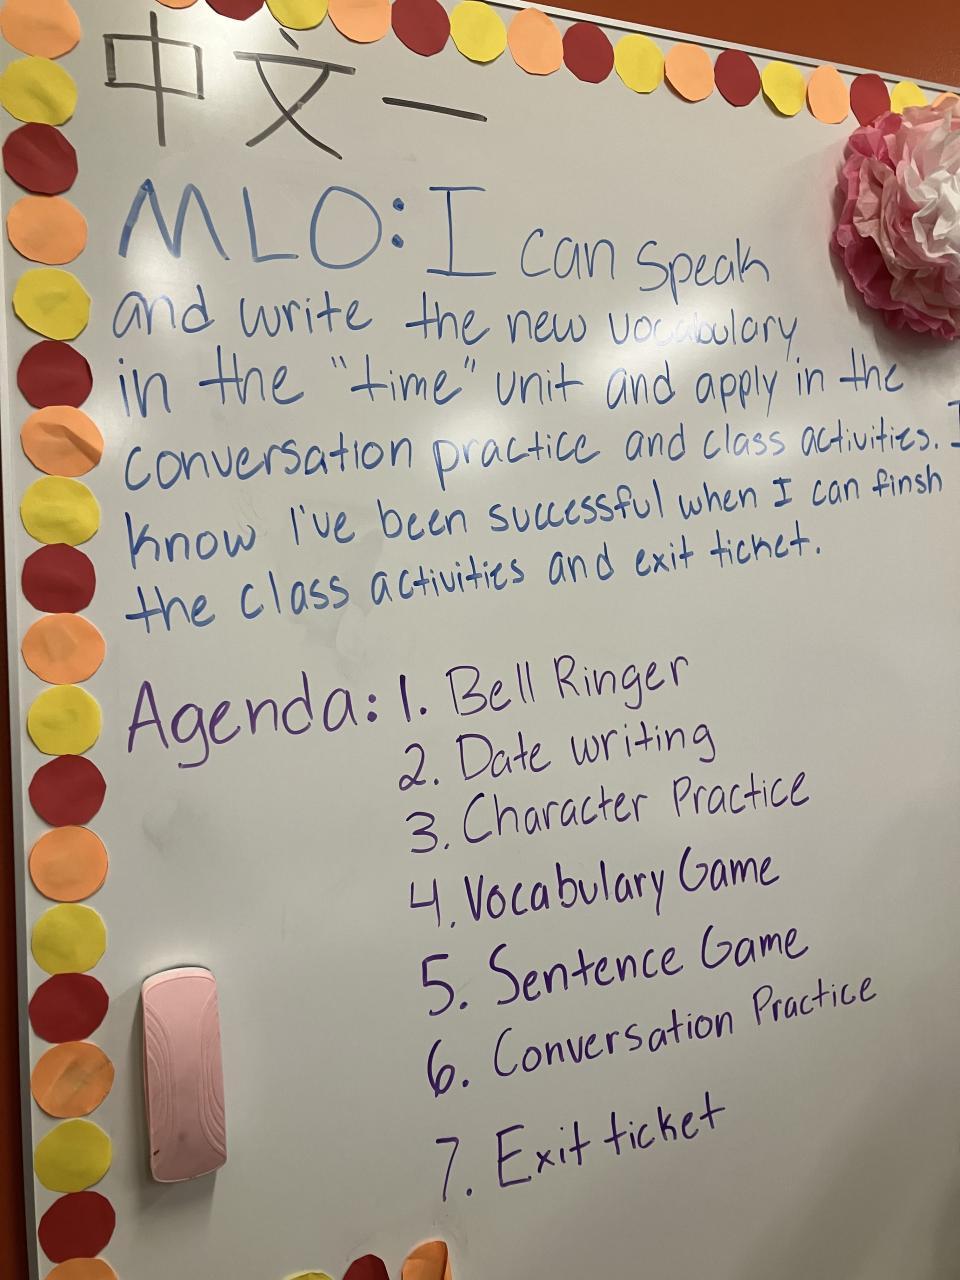 中文一
MLO: I can speak
and write the new vocabulary
in the "time" unit and apply in the
conversation practice and class activities. I
know I've been successful when I can finsh
the class activities and exit ticket.
Agenda: 1. Bell Ringer
2. Date writing
3. Character Practice
4. Vocabulary Game
5. Sentence Game
6. Conversation Practice
7. Exit ticket